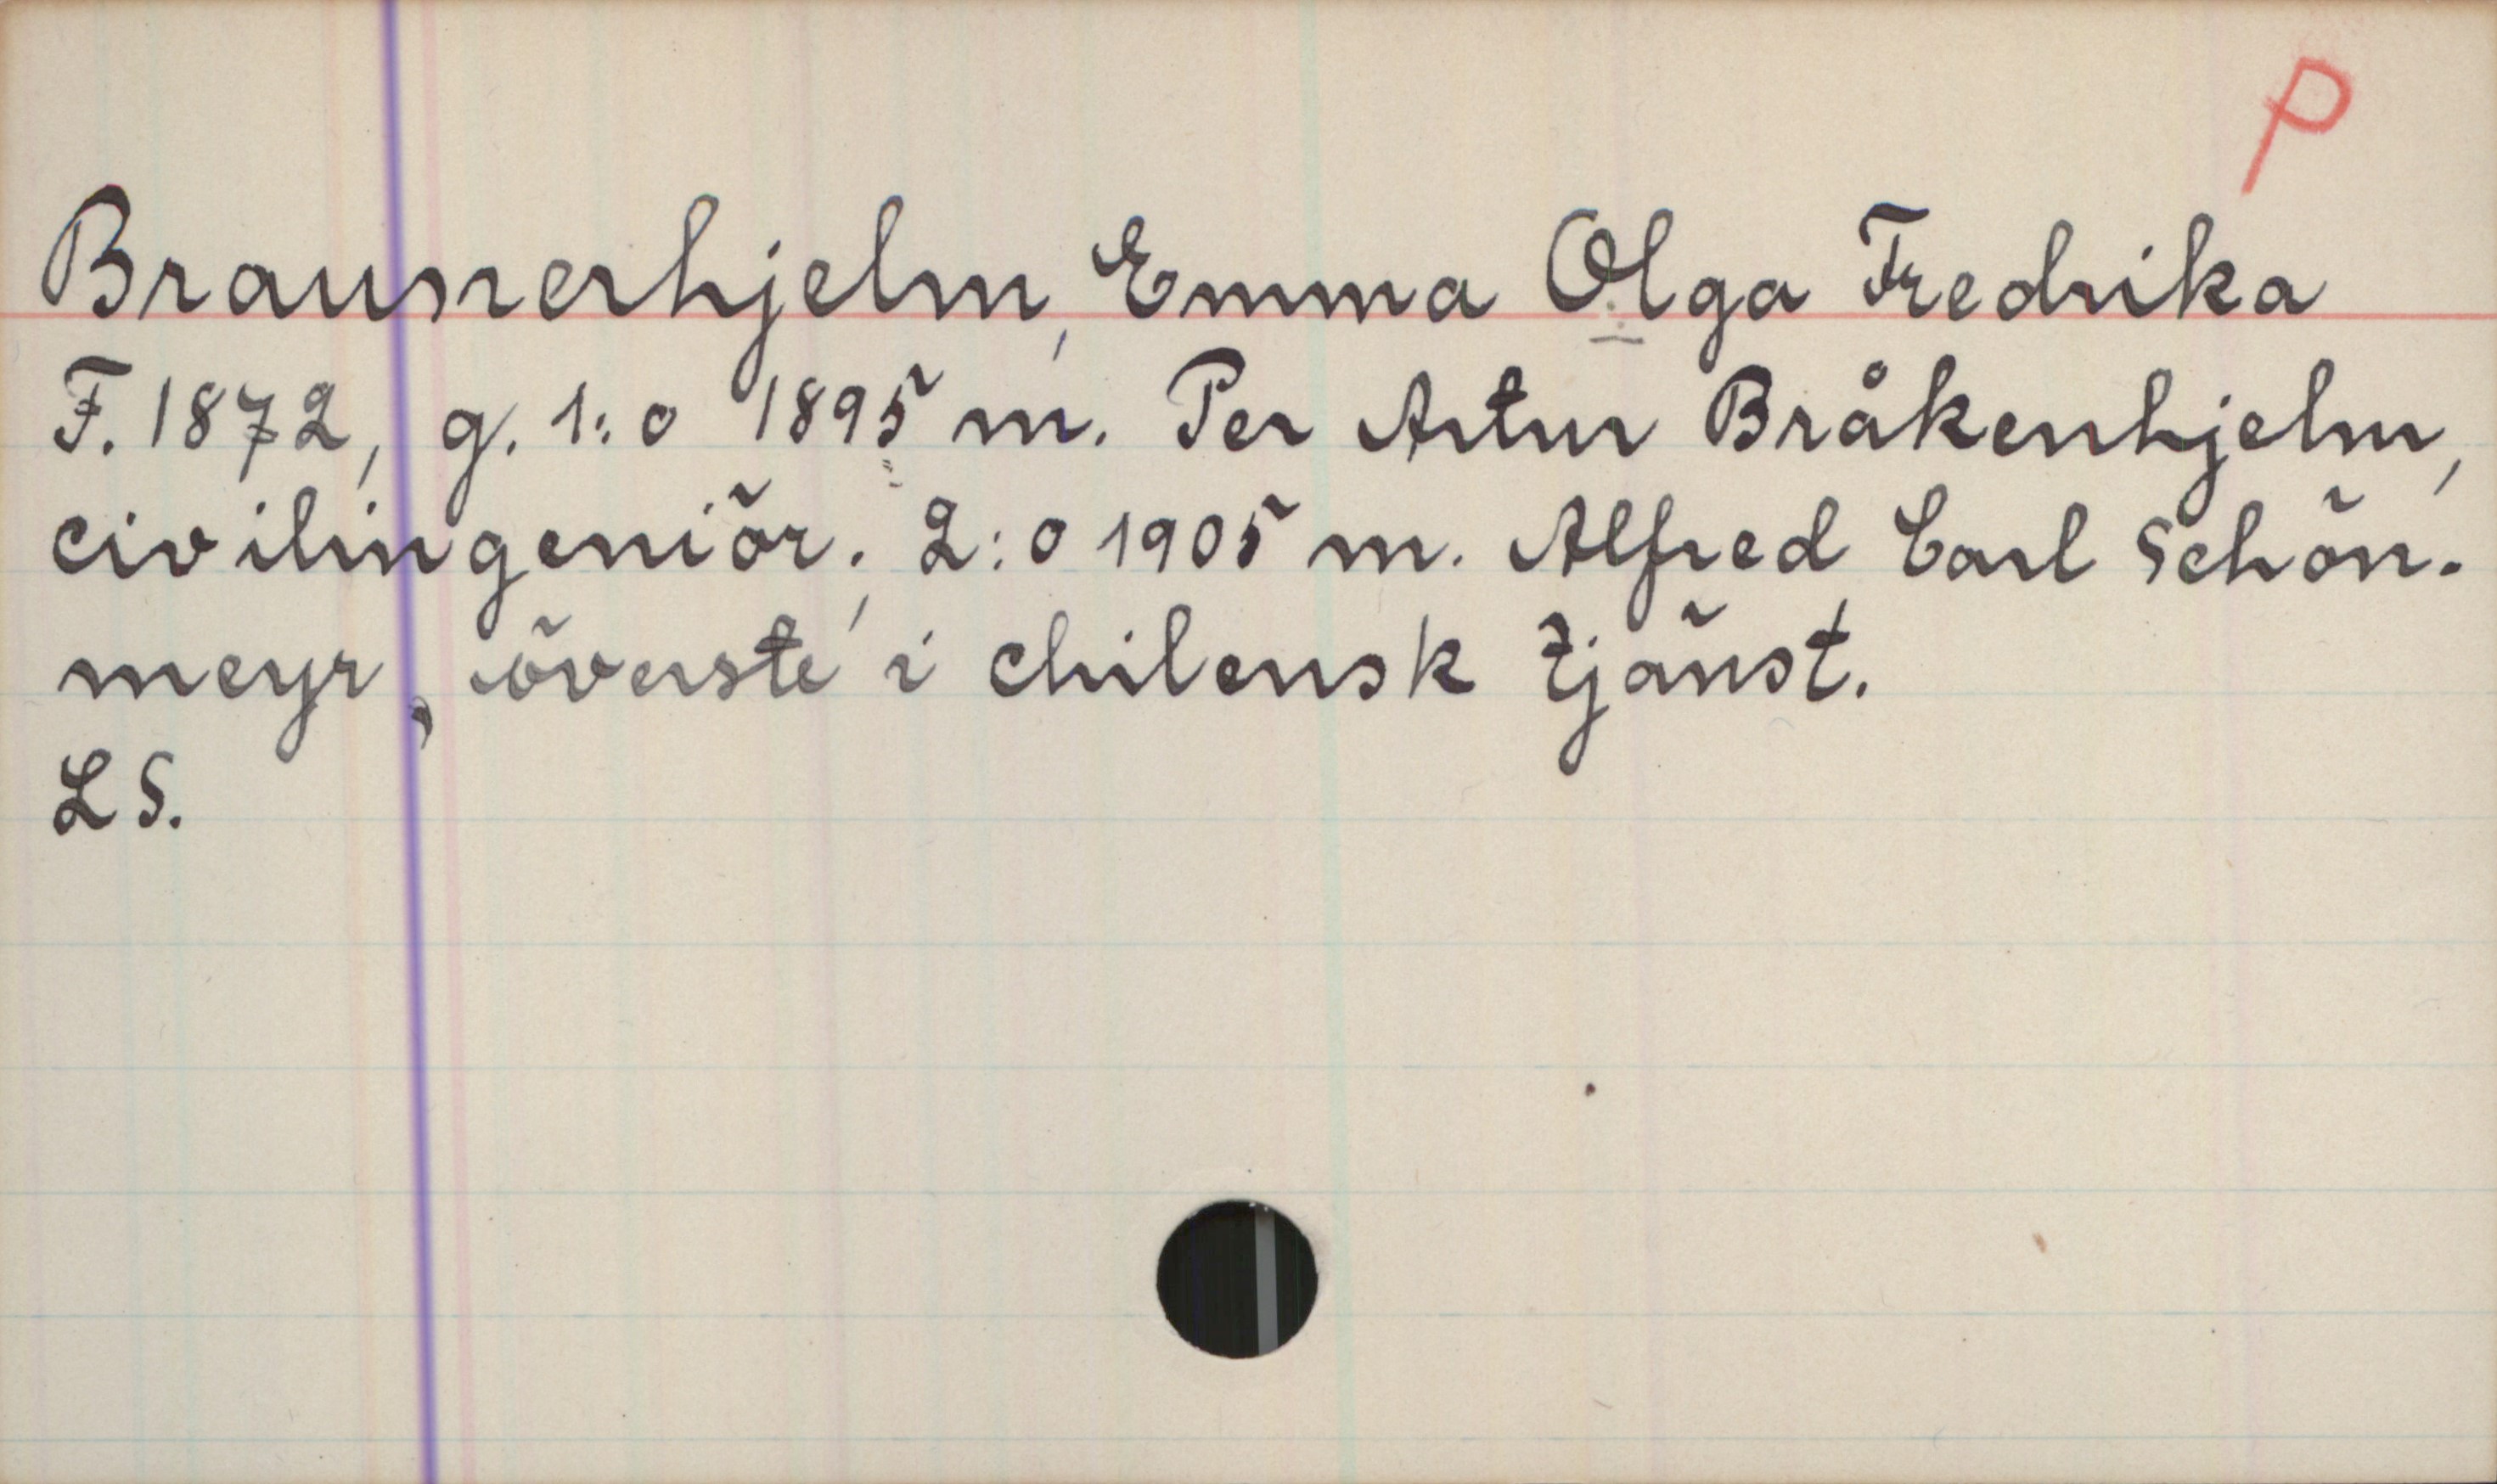 P
Braunerhjelm, Emma Olga Fredrika
F. 1872, g. 1:o 1895 m. Per Artur Bråkenhjelm,
civilingeniör; 2:o 1905 m. Alfred Carl Schön-
meyr, överste i chilensk tjänst.
LS.